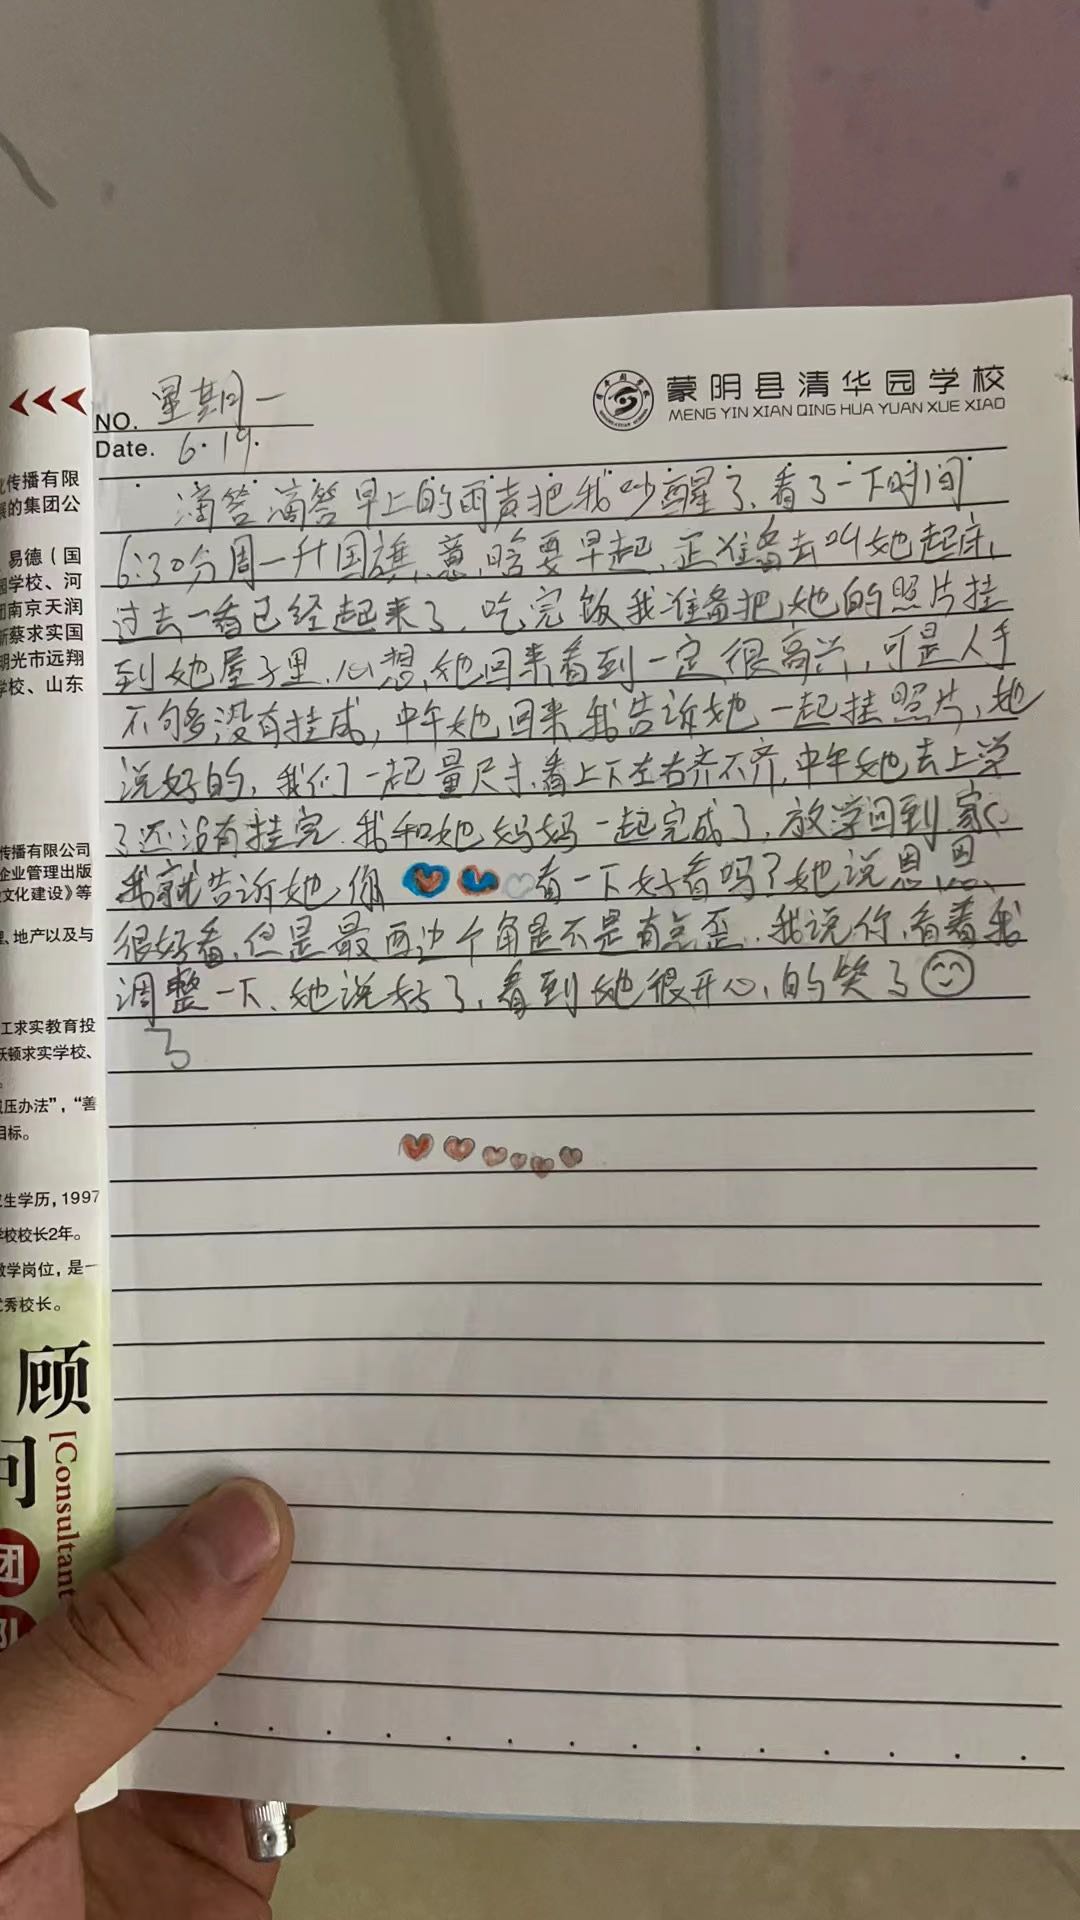 蒙阴县清华园学校
MENG YIN XIAN QING HUA YUAN XUE XIAO
NO. 星期一
Date. 6.19.
滴答滴答早上的雨声把我吵醒了、看了一下时间
6:30分周一升国旗、意晗要早起、正准备去叫她起床、
过去一看已经起来了、吃完饭我准备把她的照片挂
到她屋子里、心想她回来看到一定很高兴,可是人手
不够没有挂成,中午她回来我告诉她一起挂照片,她
说好的,我们一起量尺寸、看上下左右齐不齐、中午她去上学
了还没有挂完、我和她妈妈一起完成了,放学回到家
我就告诉她你看一下好看吗?她说恩恩、
很好看,但是最两边个角是不是有点歪、我说你看着我
调整一下、她说好了、看到她很开心的笑了
了
传播有限
的集团公
易德(国
学校、河
南京天润
新蔡求实国
明光市远翔
学校、山东
传播有限公司
企业管理出版
文化建设》等
地产以及与
工求实教育投
沃顿求实学校、
压办法”,“善
目标。
生学历,1997
学校校长2年。
教学岗位,是一
优秀校长。
顾
问
[Consultant
团
队